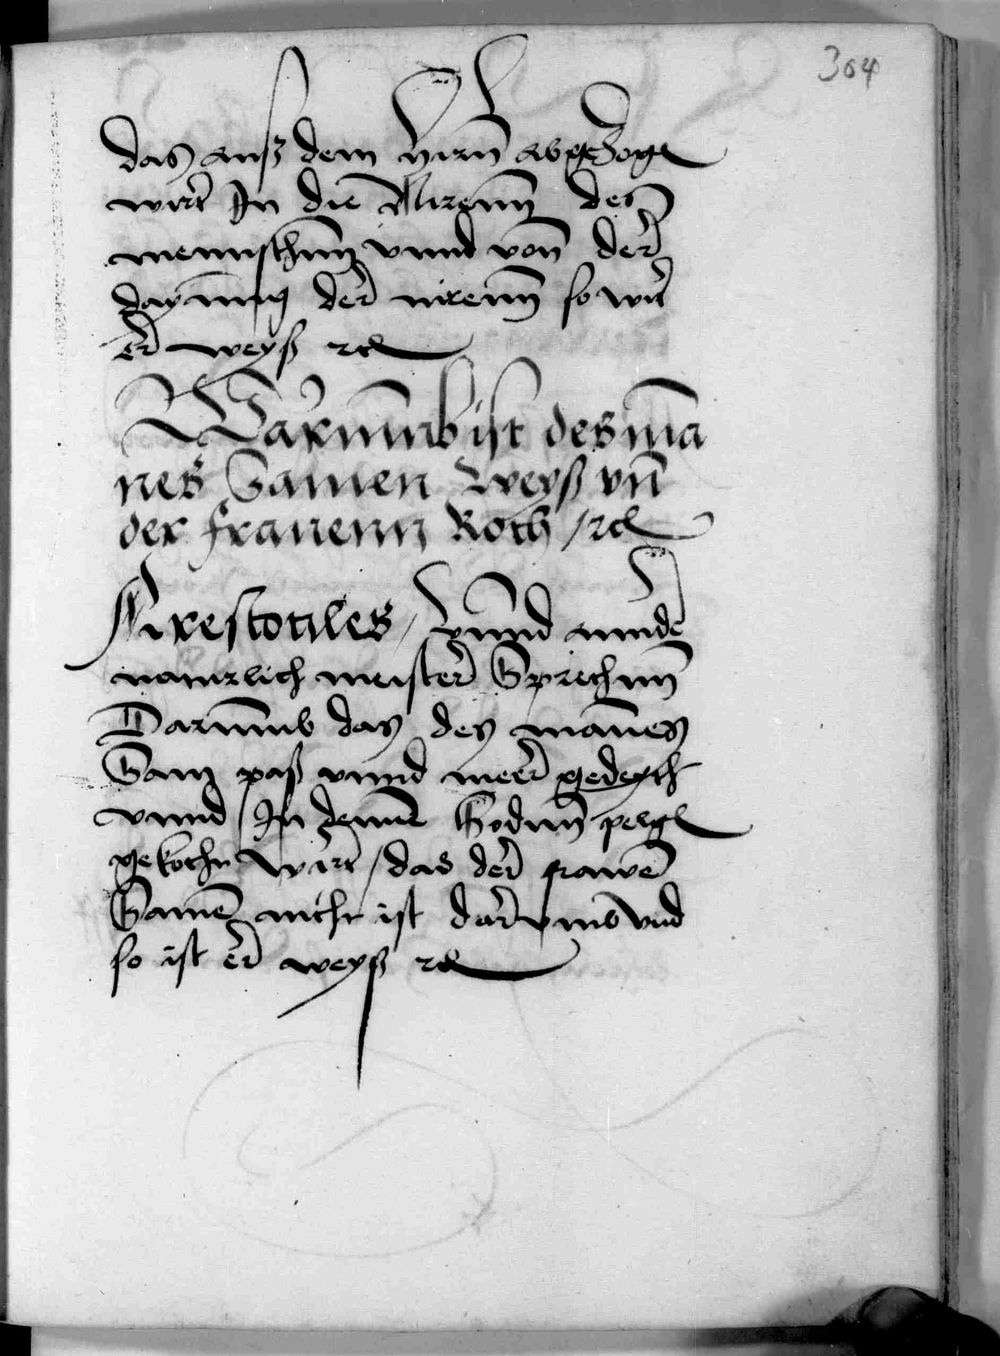 304
das auß dem hirn abgezoge
wirt In die Nirenn des
mennschenn vnnd von der
dayung der nirenn so wirt
er weyß rc
Warumb ist des ma
nes Samen Weyß vn
der frauenn Roth / rc
Arestotiles / vnnd annder
naturlich meister Sprechnn
Darumb das des mannes
Sam paß vnnd meer gedeyth
vnnd In denn Hodnn
gekocht Wirt / das der frawen
Samen nicht ist darvmb vnd
so ist er weyß rc